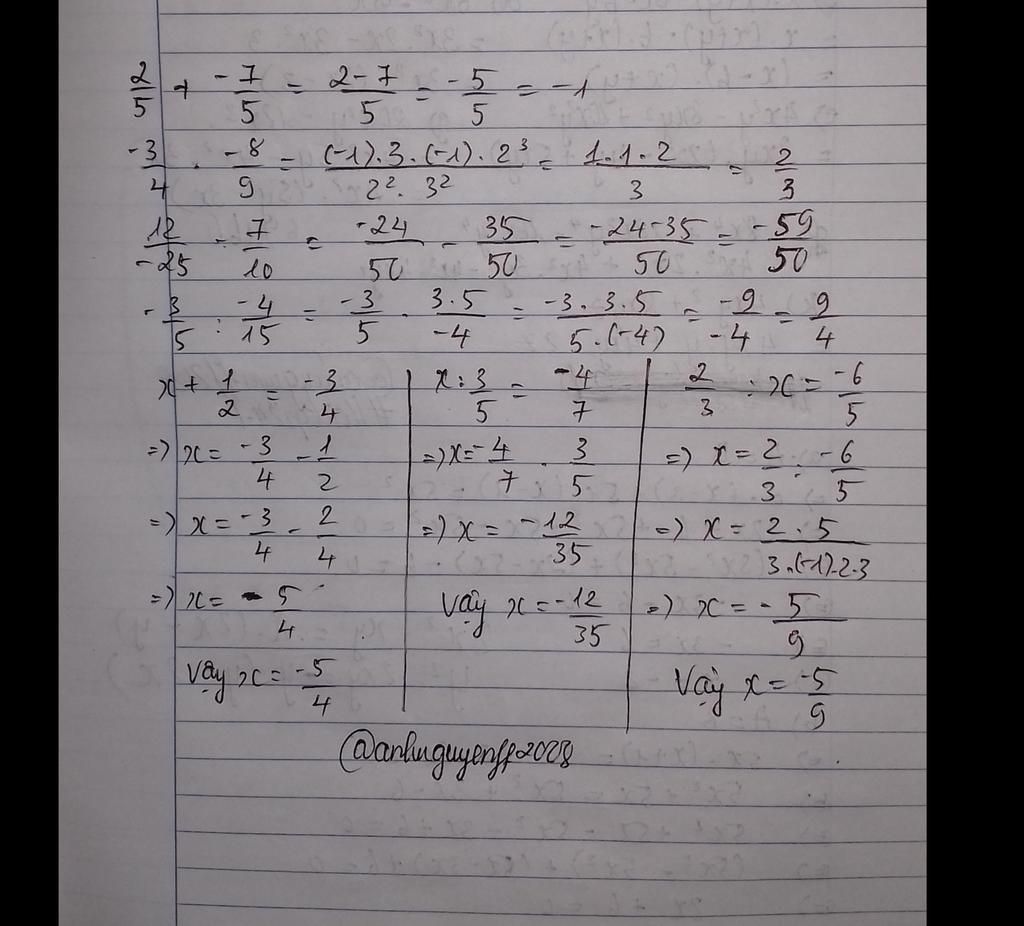 2/5 + -7/5 = 2-7/5 = -5/5 = -1
-3/4 . -8/9 = (-1).3.(-1).2³/2².3² = 1.1.2/3 = 2/3
12/-25 - 7/10 = -24/50 - 35/50 = -24-35/50 = -59/50
-3/5 : -4/15 = -3/5 . 3.5/-4 = -3.3.5/5.(-4) = -9/-4 = 9/4
x + 1/2 = -3/4
=) x = -3/4 - 1/2
=) x = -3/4 - 2/4
=) x = -5/4
Vậy x = -5/4
x : 3/5 = -4/7
=) x = -4/7 . 3/5
=) x = -12/35
Vậy x = -12/35
2/3 : x = -6/5
=) x = 2/3 : -6/5
=) x = 2.5/3.(-1).2.3
=) x = -5/9
Vậy x = -5/9